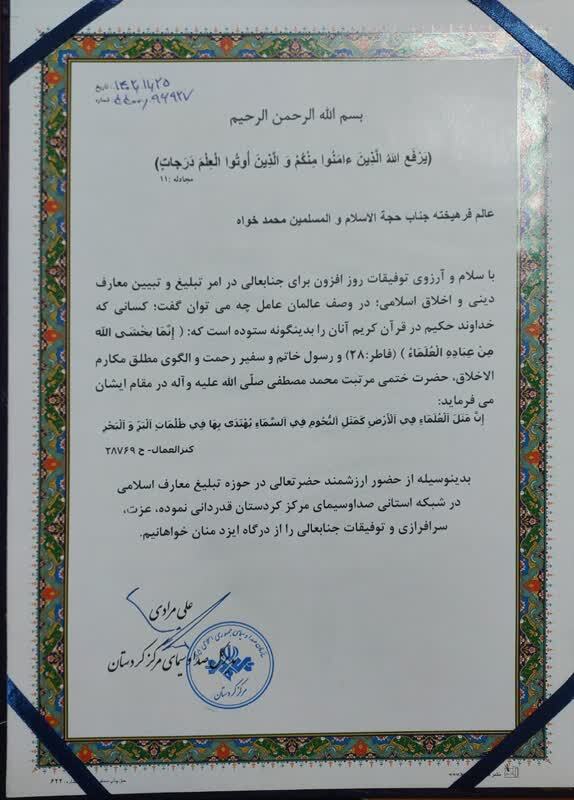 تاریخ: ۱۴۰۲/۱۱/۲۵
شماره:
بسم الله الرحمن الرحیم
(یَرْفَعِ اللهُ الَّذِینَ ءامَنُوا مِنْکُمْ وَ الَّذِینَ أُوتُوا الْعِلْمَ دَرَجاتٍ)
مجادله :۱۱
عالم فرهیخته جناب حجة الاسلام و المسلمین محمد خواه
با سلام و آرزوی توفیقات روز افزون برای جنابعالی در امر تبلیغ و تبیین معارف
دینی و اخلاق اسلامی؛ در وصف عالمان عامل چه می توان گفت؛ کسانی که
خداوند حکیم در قرآن کریم آنان را بدینگونه ستوده است که: ( إِنَّمَا یَخْشَى اللَّهَ
مِنْ عِبَادِهِ الْعُلَمَاءُ ) (فاطر:۲۸) و رسول خاتم و سفیر رحمت و الگوی مطلق مکارم
الاخلاق، حضرت ختمی مرتبت محمد مصطفی صلّی الله علیه وآله در مقام ایشان
می فرماید:
إِنَّ مَثَلَ الْعُلَمَاءِ فِي الْأَرْضِ كَمَثَلِ النُّجُومِ فِي السَّمَاءِ يُهْتَدَى بِهَا فِي ظُلُمَاتِ الْبَرِّ وَ الْبَحْرِ
کنزالعمال- ح ۲۸۷۶۹
بدینوسیله از حضور ارزشمند حضرتعالی در حوزه تبلیغ معارف اسلامی
در شبکه استانی صداوسیمای مرکز کردستان قدردانی نموده، عزت،
سرافرازی و توفیقات جنابعالی را از درگاه ایزد منان خواهانیم.
علی مرادی
مدیرکل صداوسیمای مرکز کردستان
سازمان صدا و سیمای جمهوری اسلامی ایران
مرکز کردستان
۶۲۲